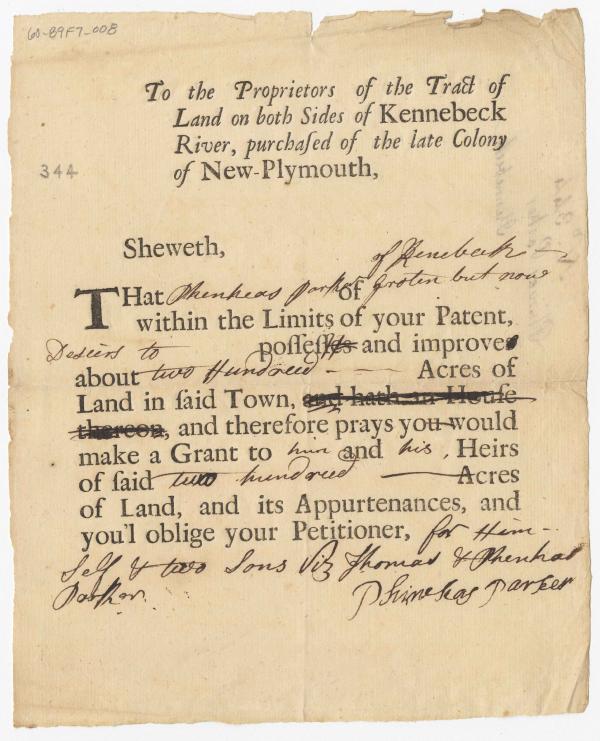 60-89F7-008
To the Proprietors of the Tract of
Land on both Sides of Kennebeck
River, purchaſed of the late Colony
of New-Plymouth,
344
Sheweth,
of Kenebeck
THat Phenheas Parker of Groten but now
within the Limits of your Patent,
Desiers to poſſeſs and improve
about two Hundreed Acres of
Land in ſaid Town, and hath an Houſe
thereon, and therefore prays you would
make a Grant to him and his, Heirs
of ſaid two hundreed Acres
of Land, and its Appurtenances, and
you'l oblige your Petitioner, for Him
Self & two Sons Viz Thomas & Phenhas
Parker.
Phinehas Parker